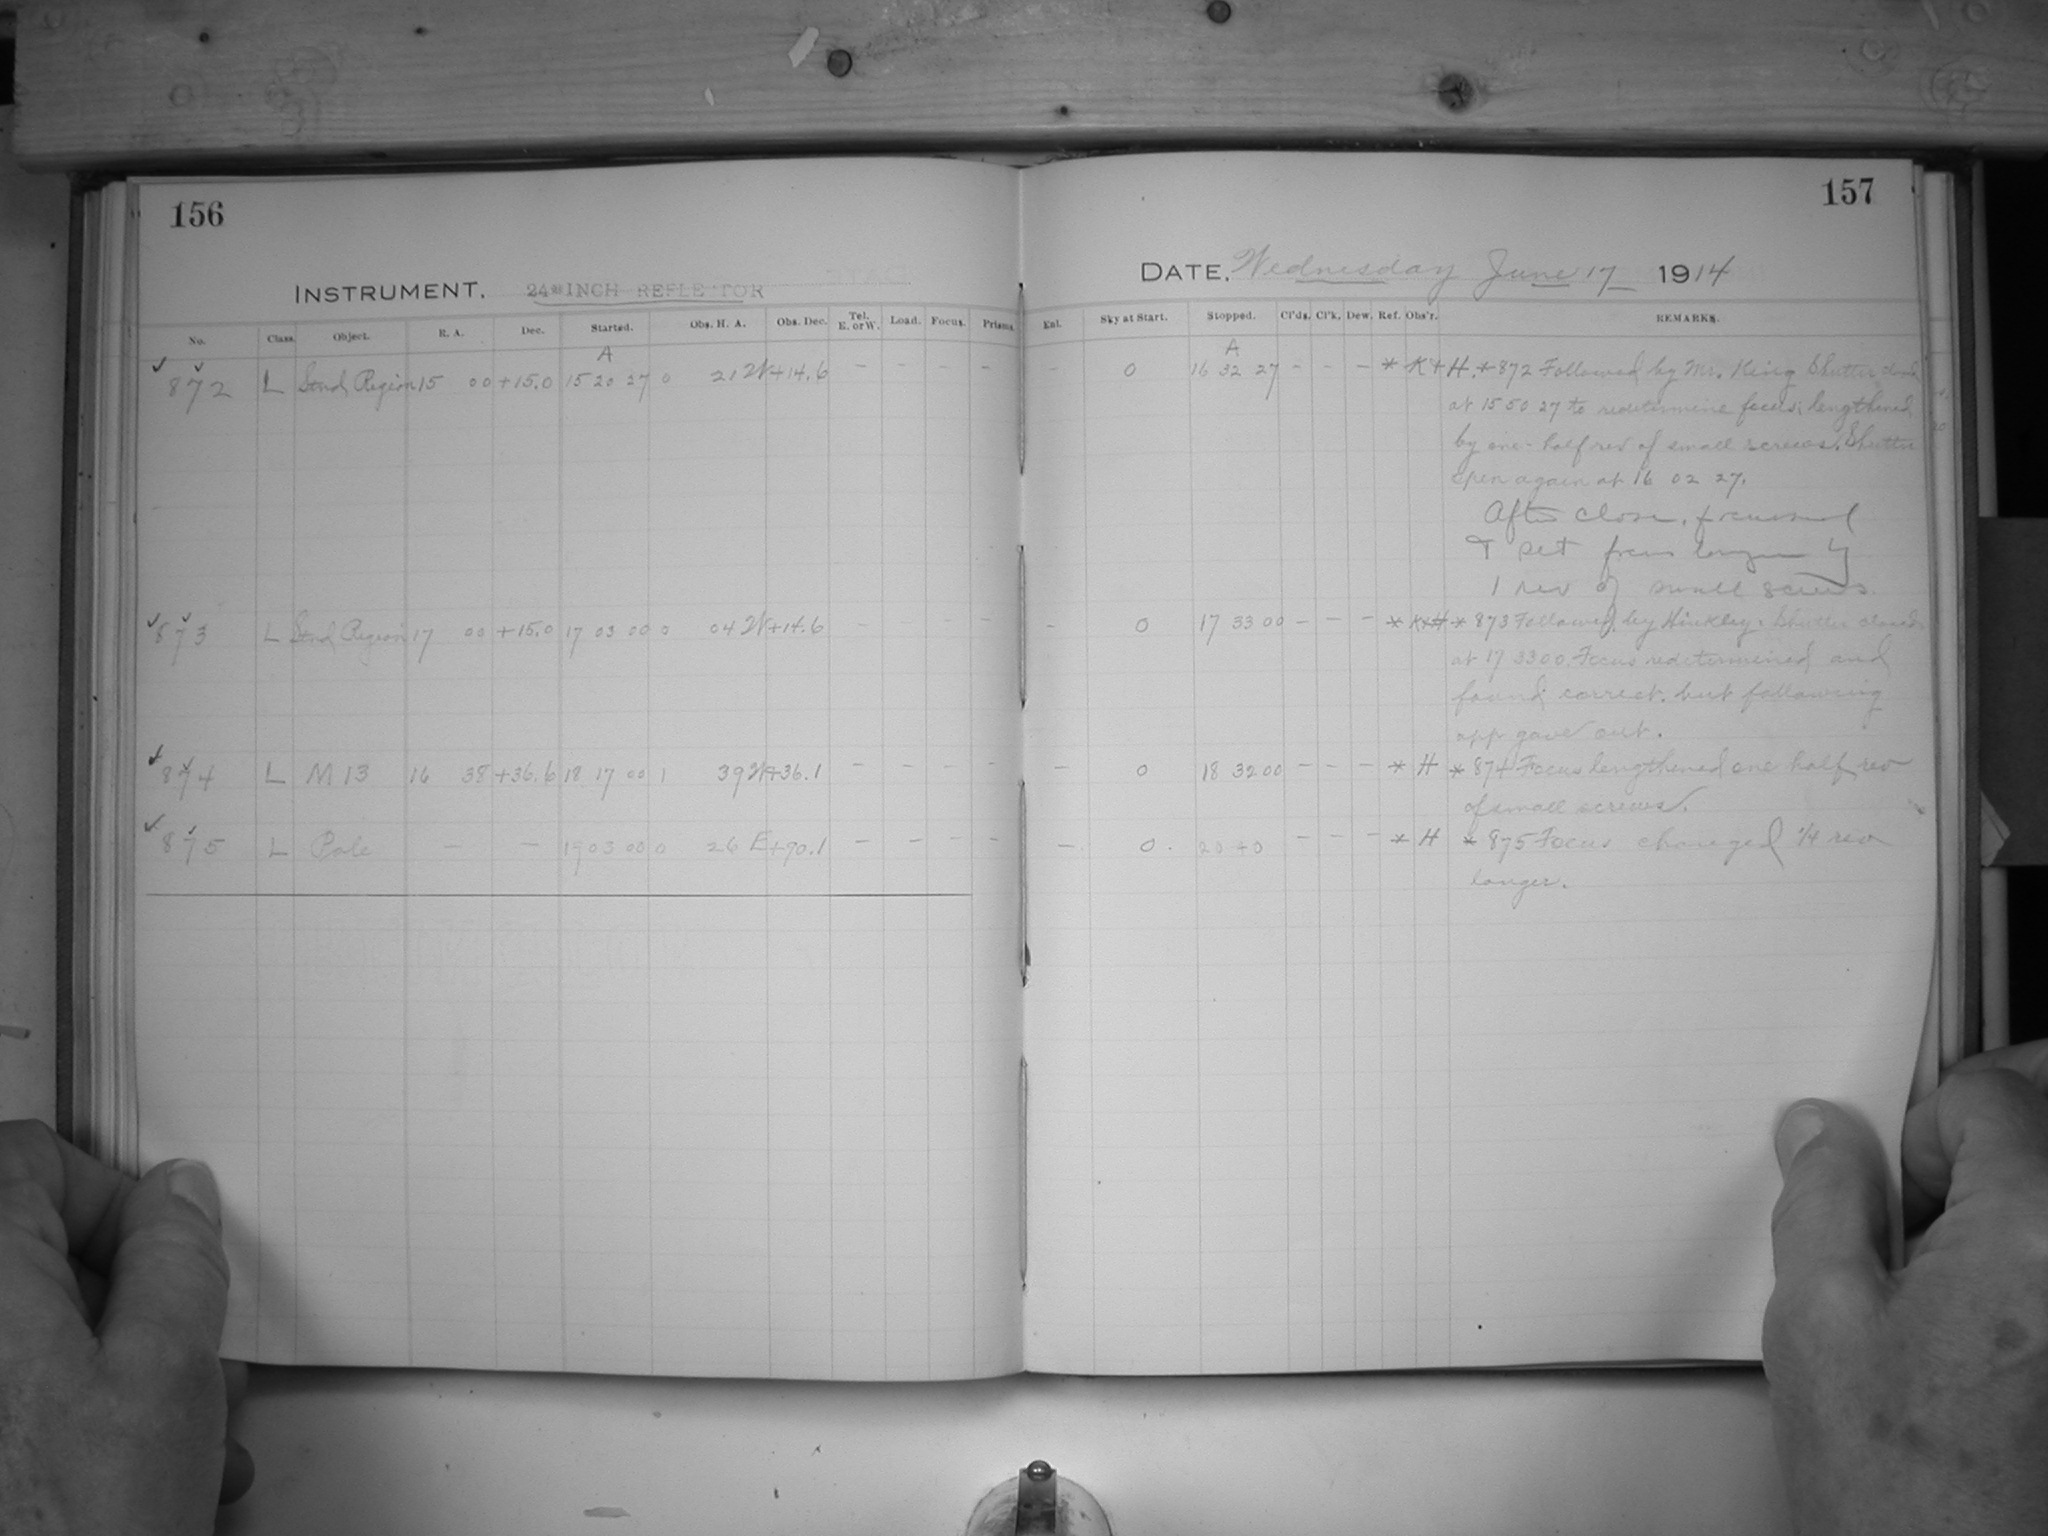 156
INSTRUMENT. 24 INCH REFLE TOR
No. Class. Object. R. A. Dec. Started. Obs. H. A. Obs. Dec. Tel. E. or W. Load. Focus. Prisms.
A
872 L Stnd Region 15 00 +15.0 15 20 27 0 21 W +14.6 - - - -
873 L Stnd Region 17 00 +15.0 17 03 00 0 04 W +14.6 - - - -
874 L M 13 16 38 +36.6 18 17 00 1 39 W +36.1 - - - -
875 L Pole - - 19 03 00 0 26 E +90.1 - - - -
157
DATE. Wednesday June 17 1914
Enl. Sky at Start. Stopped. Cl'ds. Cl'k. Dew. Ref. Obs'r. REMARKS.
A
- 0 16 32 27 - - - * K + H. *872 Followed by Mr. King Shutter closed
at 15 50 27 to redetermine focus; lengthened
by one-half rev of small screws. Shutter
open again at 16 02 27.
After close, focussed
& set focus longer by
1 rev of small screws
- 0 17 33 00 - - - * K+H * 873 Followed by Hinkley. Shutter closed
at 17 33 00. Focus redetermined and
found correct. but following
app gave out.
- 0 18 32 00 - - - * H * 874 Focus lengthened one half rev
of small screws.
- 0. 20 40 - - - * H * 875 Focus changed 1/4 rev
longer.